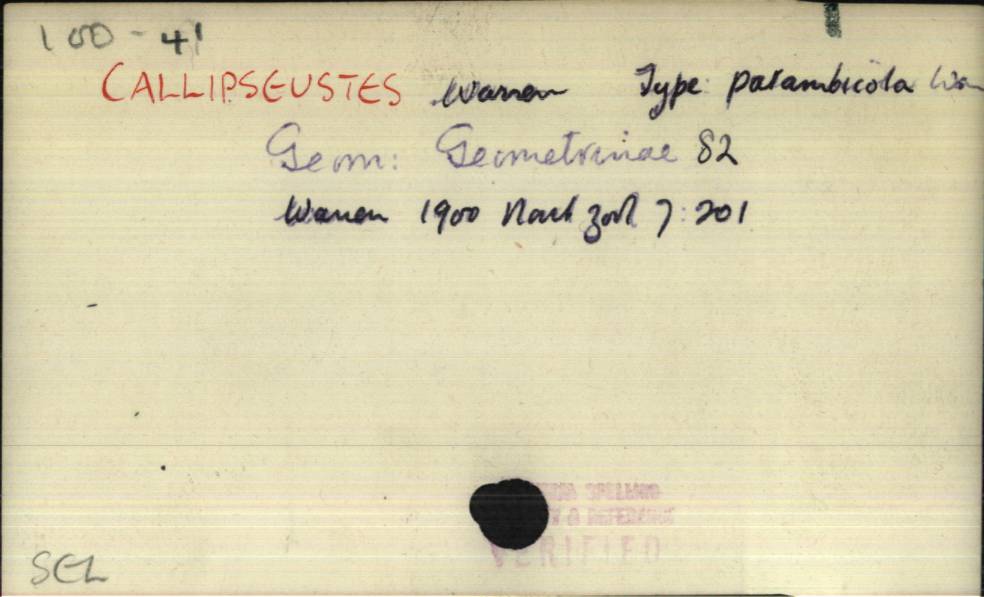 100-41
CALLIPSEUSTES Warren Type: parambicola
Geom: Geometrinae 82
Warren 1900 7:201
SPELLING
& REFERENCE
VERIFIED
SEL